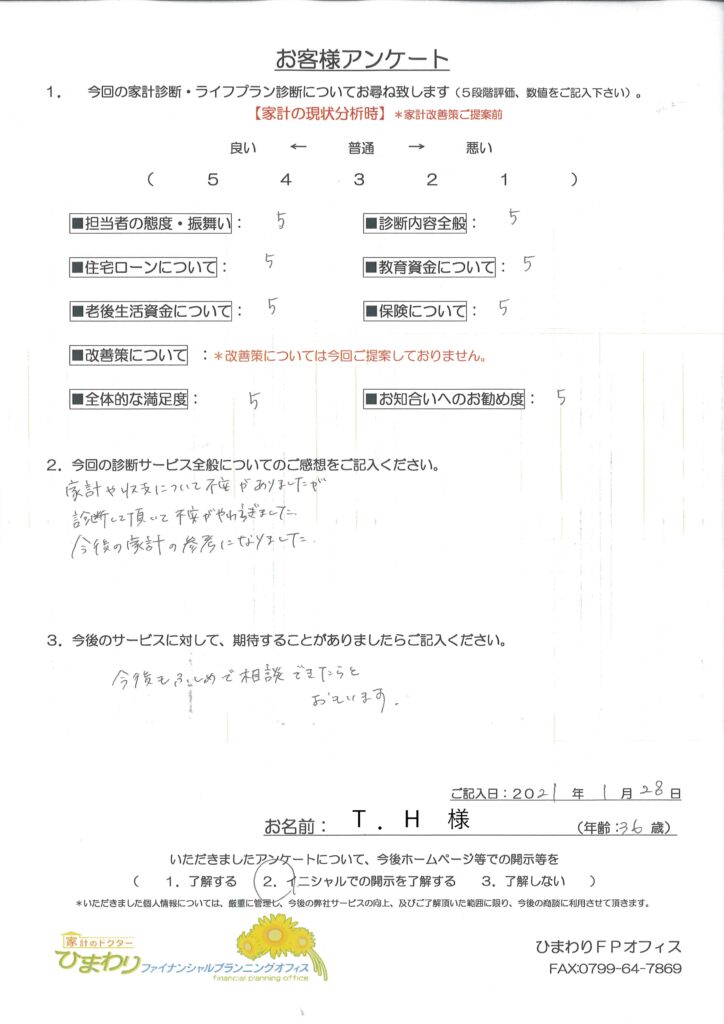 お客様アンケート
1． 今回の家計診断・ライフプラン診断についてお尋ね致します（５段階評価、数値をご記入下さい）。
【家計の現状分析時】＊家計改善策ご提案前
良い ← 普通 → 悪い
（ 5 4 3 2 1 ）
■担当者の態度・振舞い： 5 ■診断内容全般： 5
■住宅ローンについて： 5 ■教育資金について： 5
■老後生活資金について： 5 ■保険について： 5
■改善策について ：＊改善策については今回ご提案しておりません。
■全体的な満足度： 5 ■お知合いへのお勧め度： 5
2．今回の診断サービス全般についてのご感想をご記入ください。
家計や収支について不安がありましたが
診断して頂いて不安がやわらぎました.
今後の家計の参考になりました.
3．今後のサービスに対して、期待することがありましたらご記入ください。
今後もふしめで相談できたらと
おもいます.
ご記入日：２０21 年 1 月 28 日
お名前： T．H 様 （年齢：36 歳）
いただきましたアンケートについて、今後ホームページ等での開示等を
（ 1．了解する 2．イニシャルでの開示を了解する 3．了解しない ）
＊いただきました個人情報については、厳重に管理し、今後の弊社サービスの向上、及びご了解頂いた範囲に限り、今後の商談に利用させて頂きます。
家計のドクター
ひまわり ファイナンシャルプランニングオフィス
financial planning office
ひまわりＦＰオフィス
FAX:0799-64-7869